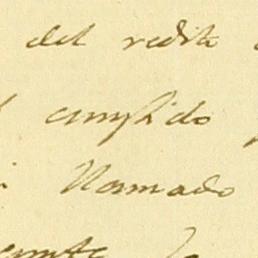 del redito
cumplido
llamado